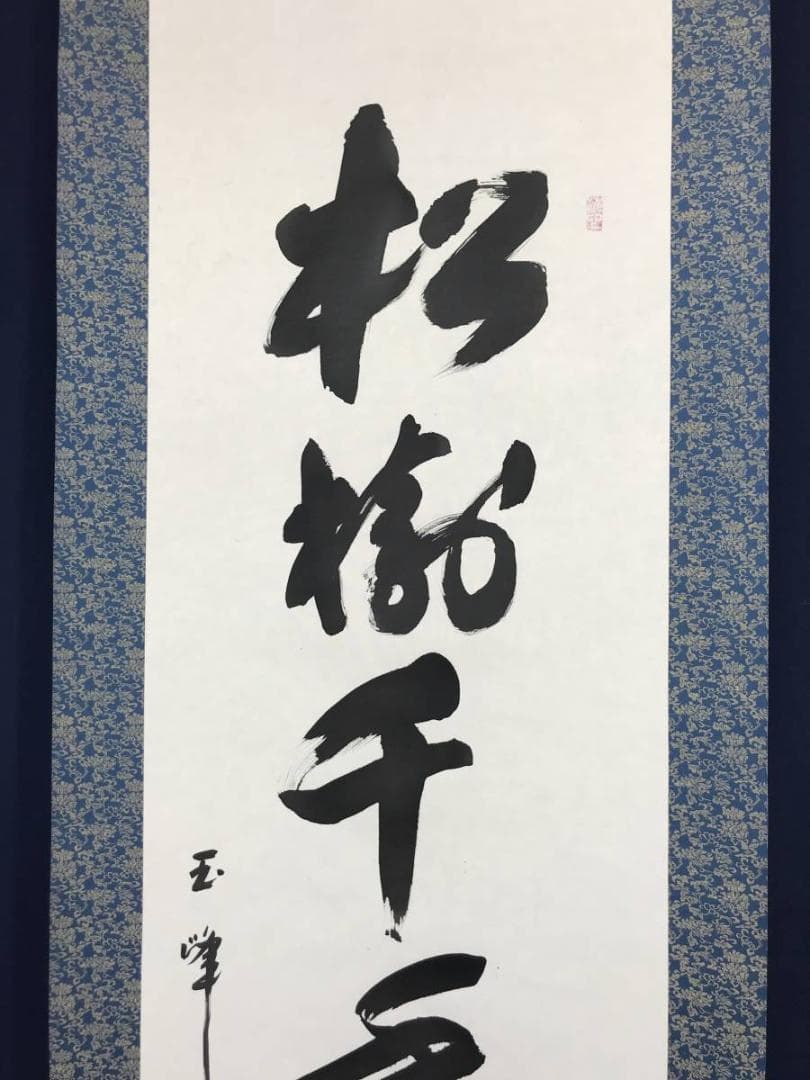 松樹千
玉峰